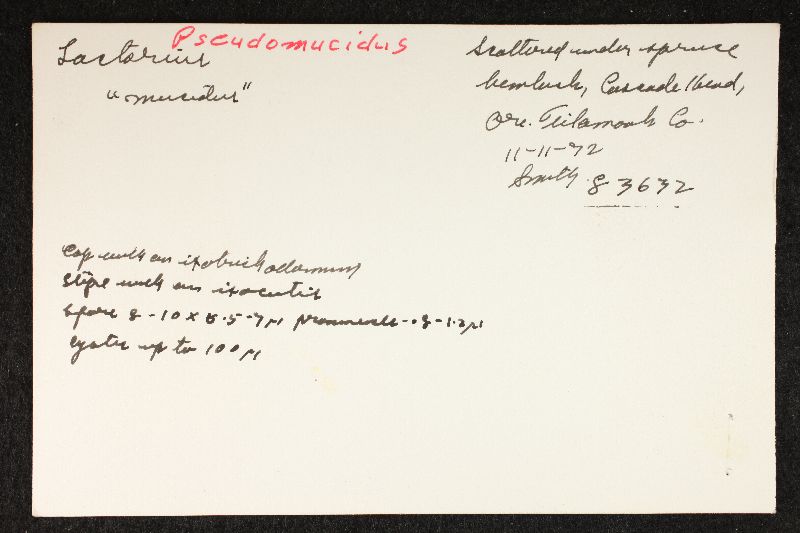 Pseudomucidus
Lactarius
"mucidus"
Scattered under spruce
hemlock, Cascade Head,
Ore. Tillamook Co.
11-11-72
Smith 83632
Cap with an ixotrichodermium
Stipe with an ixocutis
Spore 8-10 x 6.5-7µ prominence -.8-1.2µ
cystid up to 100µ